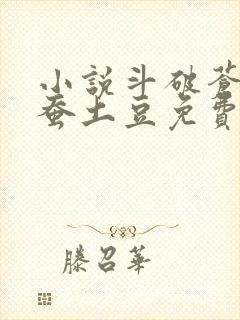 小說斗破蒼
蚕土豆免費
滕召華